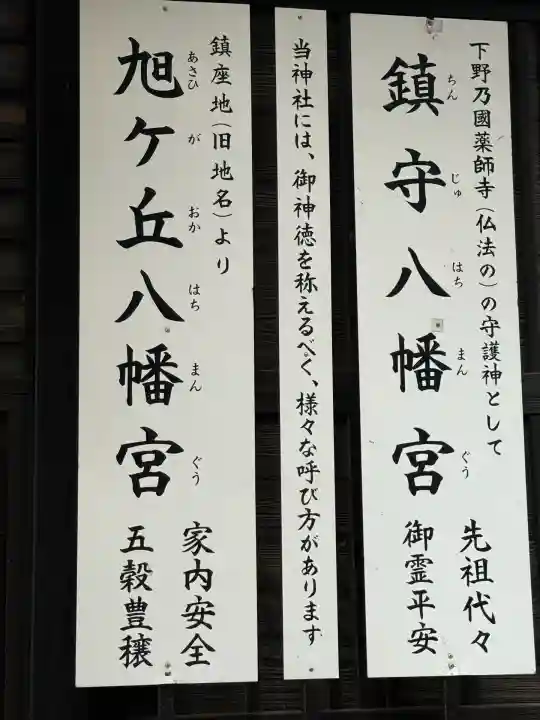 下野乃國薬師寺(仏法の)の守護神として
鎮守八幡宮
ちんじゅはちまんぐう
先祖代々
御霊平安
当神社には、御神徳を称えるべく、様々な呼び方があります
鎮座地(旧地名)より
旭ケ丘八幡宮
あさひがおかはちまんぐう
家内安全
五穀豊穣